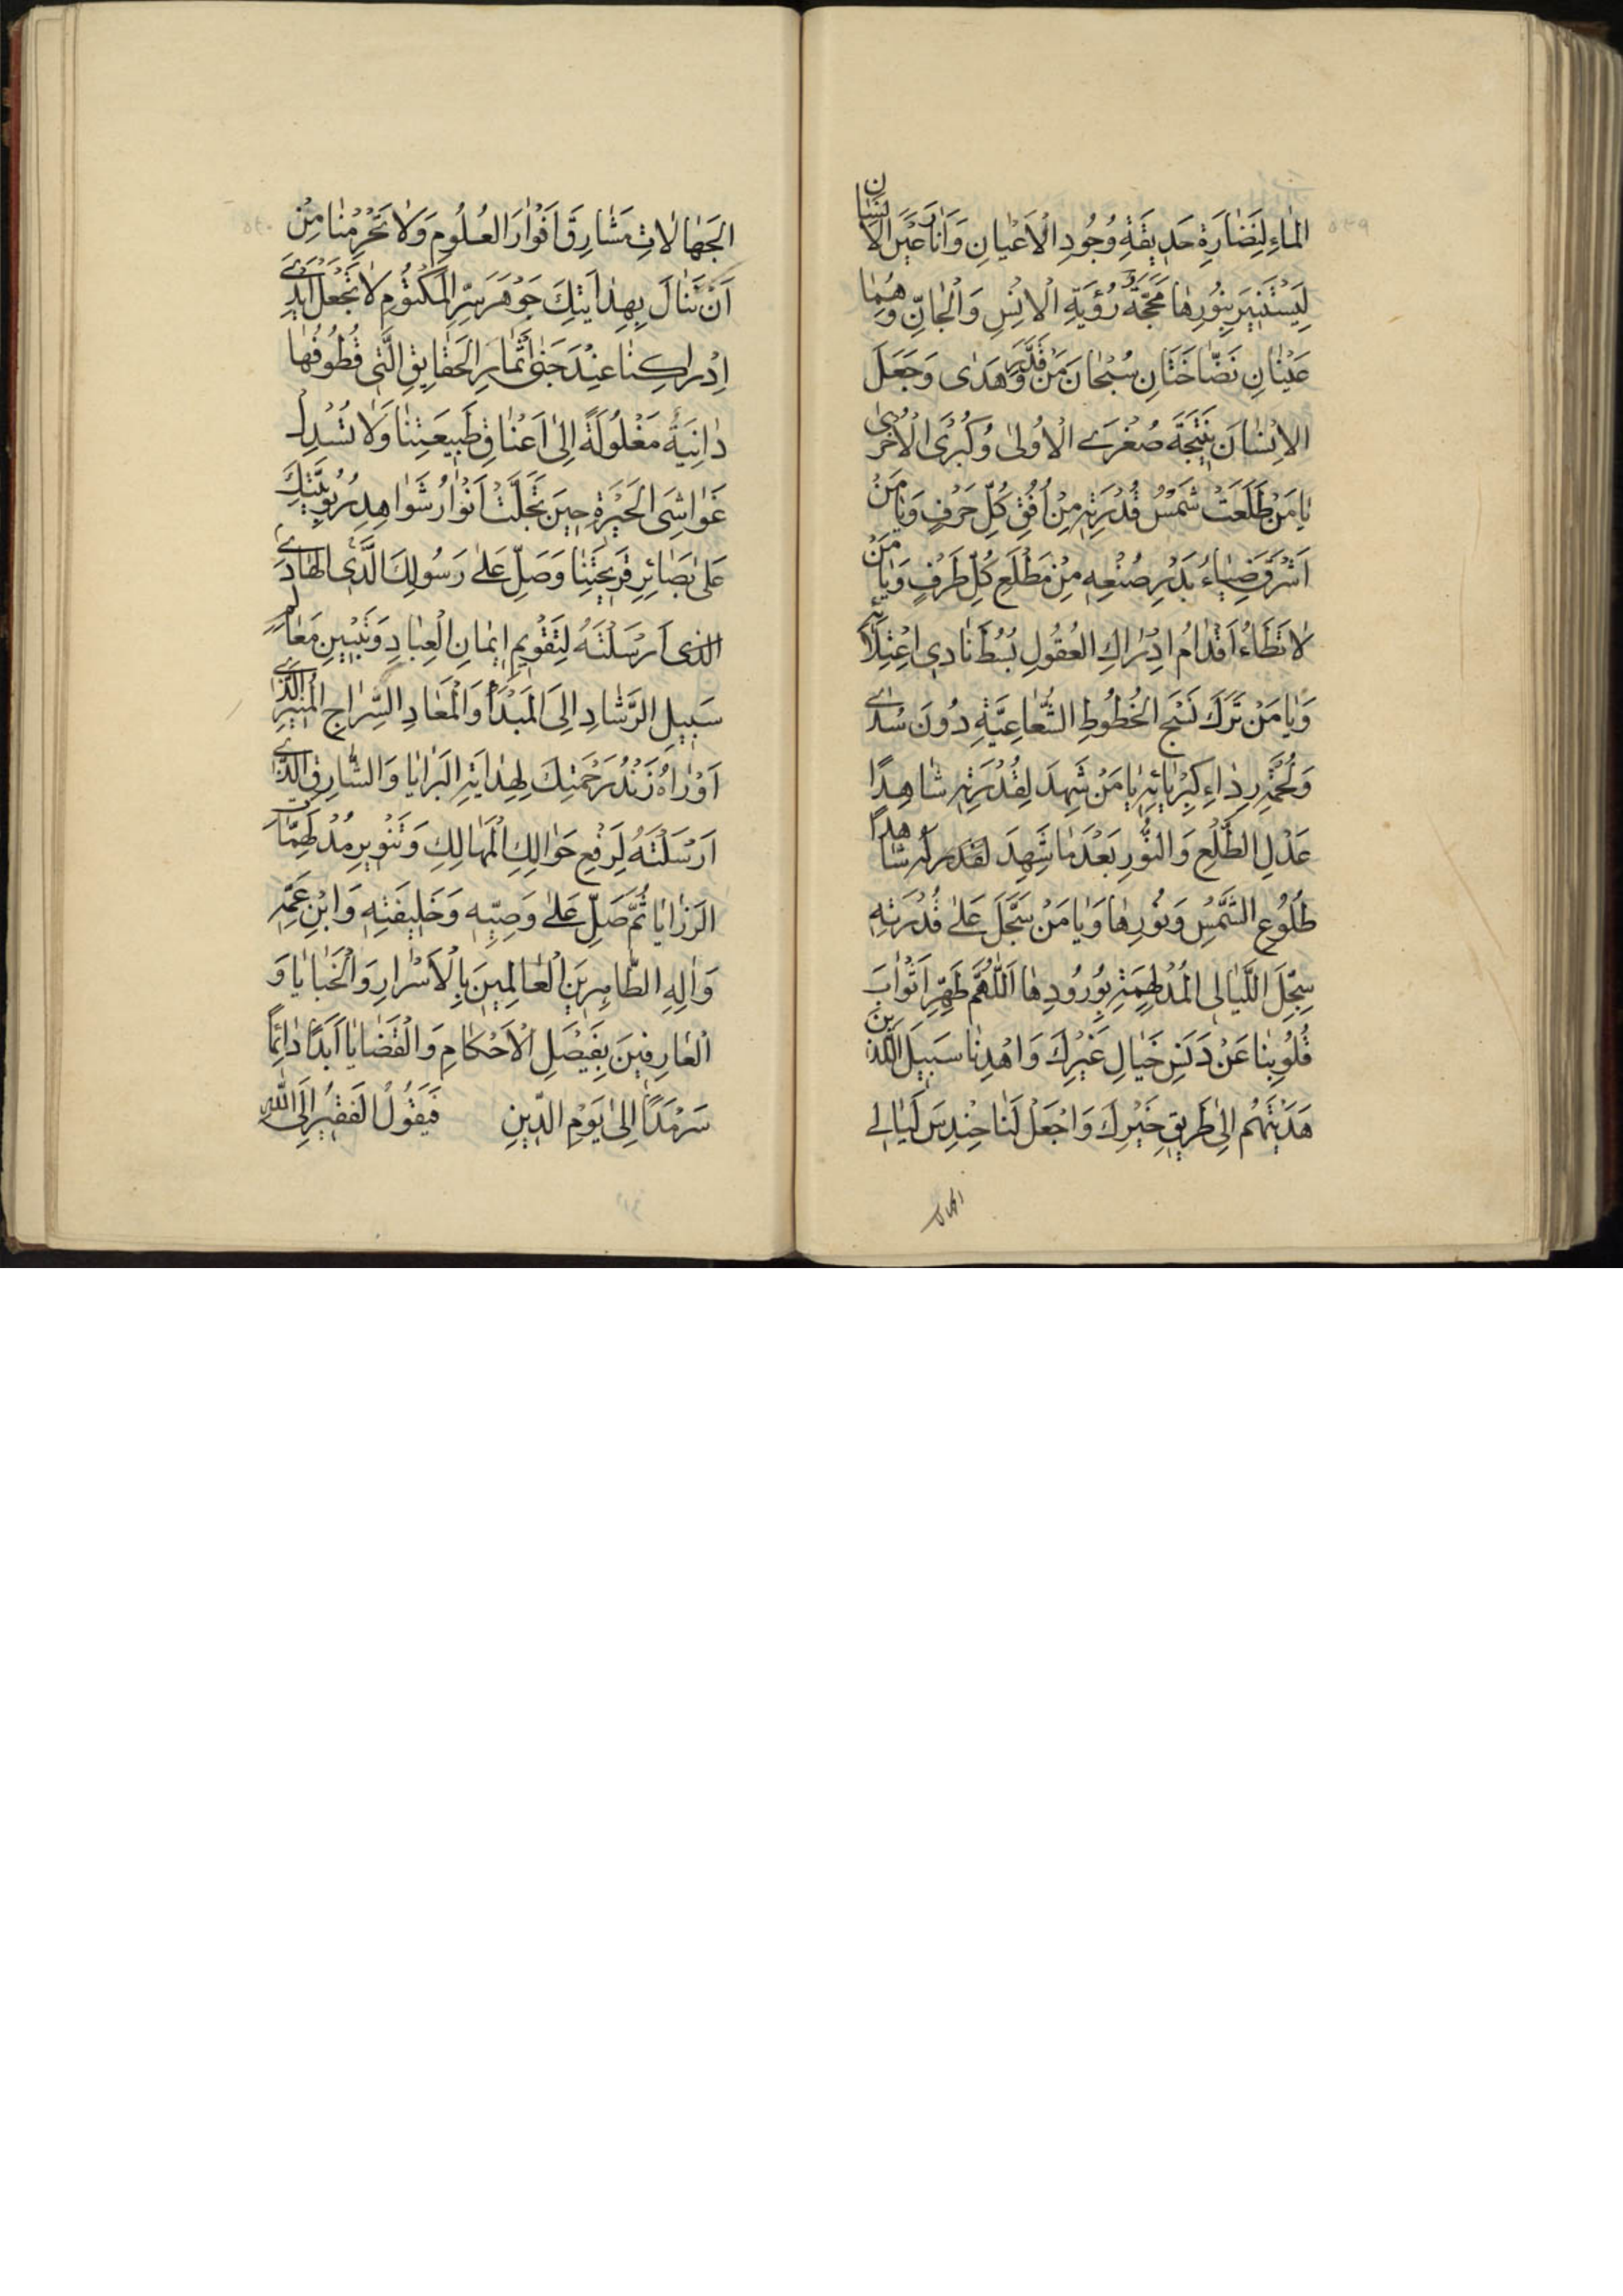 المٰاءِ لِنَضٰارَةِ حَدِيقَةِ وُجُودِ الْاَعْيٰانِ وَاَنٰارَ عَيْنَ الْاِنْسٰانِ
لِيَسْتَنِيرَ بِنُورِهٰا مَحَجَّةُ رُؤْيَةِ الْاِنْسِ وَالْجٰانِّ وَهُمٰا
عَيْنٰانِ نَضّٰاخَتٰانِ سُبْحٰانَ مَنْ قَدَّرَ وَهَدٰى وَجَعَلَ
الْاِنْسٰانَ نَتِيجَةَ صُغْرَى الْاُولىٰ وَكُبْرَى الْاُخْرىٰ
يٰا مَنْ طَلَعَتْ شَمْسُ قُدْرَتِهِ مِنْ اُفُقِ كُلِّ حَرْفٍ وَيٰا مَنْ
اَشْرَقَ ضِيٰاءُ بَدْرِ صُنْعِهِ مِنْ مَطْلَعِ كُلِّ طَرْفٍ وَيٰا مَنْ
لٰا تَطَاءُ اَقْدٰامُ اِدْرٰاكِ الْعُقُولِ بُسُطَ نٰادِي اعْتِلٰائِهِ
وَيٰا مَنْ تَرَكَ نَسْجَ الْخُطُوطِ الشُّعٰاعِيَّةِ دُونَ سُدٰى
وَلُحْمَةِ رِدٰاءِ كِبْرِيٰائِهِ يٰا مَنْ شَهِدَ لِقُدْرَتِهِ شٰاهِدًا
عَدْلِ الطَّلْعِ وَالنُّورِ بَعْدَمٰا شَهِدَ لقدمه شٰاهِدًا
طُلُوعِ الشَّمْسِ وَنُورِهٰا وَيٰا مَنْ سَجَّلَ عَلىٰ قُدْرَتِهِ
سِجِلَّ اللَّيٰالِى الْمُدْلَهِمَّةِ بِوُرُودِهٰا اَللّٰهُمَّ طَهِّرْ اَثْوٰابَ
قُلُوبِنٰا عَنْ دَنَسِ خَيٰالِ غَيْرِكَ وَاهْدِنٰا سَبِيلَ الَّذِينَ
هَدَيْتَهُمْ اِلىٰ طَرِيقِ خَيْرِكَ وَاجْعَلْ لَنٰا حِنْدِسَ لَيٰالِي
الجهالا
الْجَهٰالٰاتِ مَشٰارِقَ اَنْوٰارِ الْعُلُومِ وَلٰا تَحْرِمْنٰا مِنْ
اَنْ نَنٰالَ بِهِدٰايَتِكَ جَوْهَرَ سِرِّ الْمَكْتُومِ لٰا تَجْعَلْ اَيْدِىَ
اِدْرٰاكِنٰا عِنْدَ جَنىٰ اَثْمٰارِ الْحَقٰايِقِ الَّتِى قُطُوفُهٰا
دٰانِيَةٌ مَغْلُولَةً اِلىٰ اَعْنٰاقِ طَبِيعَتِنٰا وَلٰا تُسْدِلْ
غَوٰاشِىَ الْحَيْرَةِ حِينَ تَجَلَّتْ اَنْوٰارُ شَوٰاهِدِ رُبُوبِيَّتِكَ
عَلىٰ بَصٰائِرِ قَرِيحَتِنٰا وَصَلِّ عَلىٰ رَسُولِكَ الَّذِى الْهٰادِى
الَّذِى اَرْسَلْتَهُ لِتَقْوِيمِ اِيمٰانِ الْعِبٰادِ وَتَبْيِينِ مَعٰالِمِ
سَبِيلِ الرَّشٰادِ اِلَى الْمَبْدَأِ وَالْمَعٰادِ السِّرٰاجِ الْمُنِيرِ الَّذِى
اَوْرٰاهُ زَنْدُ رَحْمَتِكَ لِهِدٰايَةِ الْبَرٰايٰا وَالشّٰارِقِ الَّذِى
اَرْسَلْتَهُ لِرَفْعِ حَوٰالِكِ الْمَهٰالِكِ وَتَنْوِيرِ مُدْلَهِمّٰاتِ
الرَّزٰايٰا ثُمَّ صَلِّ عَلىٰ وَصِيِّهِ وَخَلِيفَتِهِ وَابْنِ عَمِّهِ
وَاٰلِهِ الطّٰاهِرِينَ الْعٰالِمِينَ بِالْاَسْرٰارِ وَالْخَبٰايٰا وَ
الْعٰارِفِينَ بِفَيْصَلِ الْاَحْكٰامِ وَالْقَضٰايٰا اَبَدًا دٰائِمًا
سَرْمَدًا اِلىٰ يَوْمِ الدِّينِ فَيَقُولُ الْفَقِيرُ اِلَى اللّٰهِ